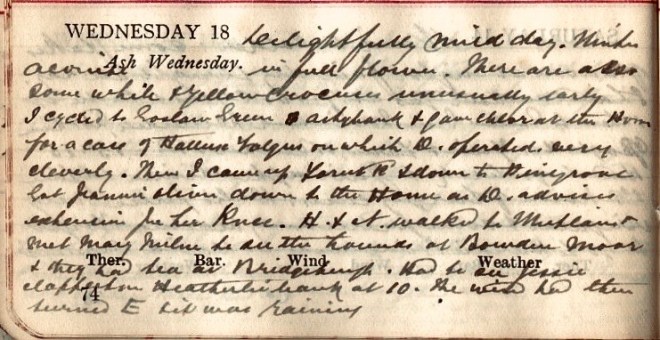 WEDNESDAY 18 Delightfully mild day. Winter
aconite Ash Wednesday. in full flower. There are also
some white & yellow crocuses unusually early
I cycled to Green & & gave chlor at the Home
for a case of Hallux Valgus on which D. operated very
cleverly. Then I came up & down to
Got Jeannie Oliver down to the Home as D. advises
extension for her Knee. H. & walked to
met Mary Milne to see the hounds at Bowden Moor
Ther. Bar. Wind Weather
& they had tea at . Had to see Jessie
74
at 10. The wind had then
turned E & it was raining